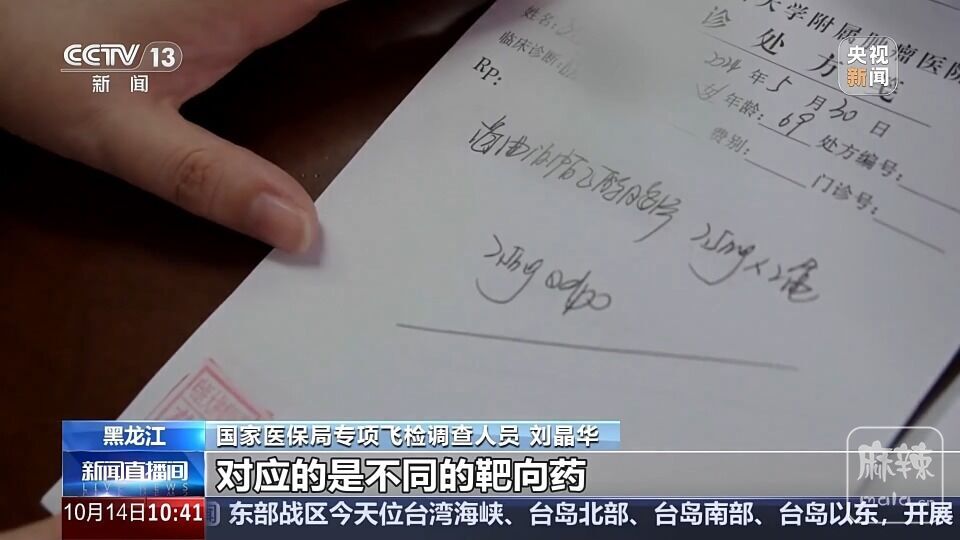 CCTV 13
新闻
央视
新闻
大学附属肿瘤医院
诊处方笺
姓名:
2024年5月30日
临床诊断:
女 年龄: 69 处方编号:
Rp:
费别: 门诊号:
25mg×2盒
25mg qd po
黑龙江
国家医保局专项飞检调查人员 刘晶华
新闻直播间
LIVE NEWS
对应的是不同的靶向药
10月14日10:41
东部战区今天位台湾海峡、台岛北部、台岛南部、台岛以东，开展
麻辣
mala.cn